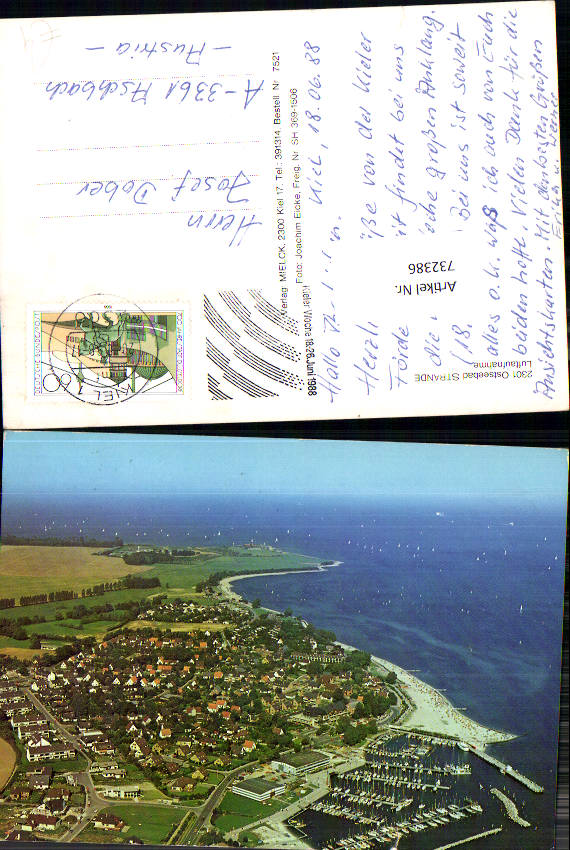 Herrn
Josef Dober
A-3361 Aschbach
- Austria -
Verlag MIELCK, 2300 Kiel 17, Tel.: 391314, Bestell. Nr 7521
Foto: Joachim Eicke, Freig. Nr. SH 369-1506
Kieler Woche 18.-26. Juni 1988
DEUTSCHE BUNDESPOST
60
KIEL 1
Kiel, 18.06.88
Hallo
Herzli
ße von der Kieler
Förde
ist findet bei uns
die
großen Anklang.
Bei uns ist soweit
alles o.k. was ich auch von Euch
hoffe. Vielen Dank für die
Ansichtskarten. Mit den besten Grüßen
Erika u.
Artikel Nr.
732386
2301 Ostseebad STRANDE
Luftaufnahme